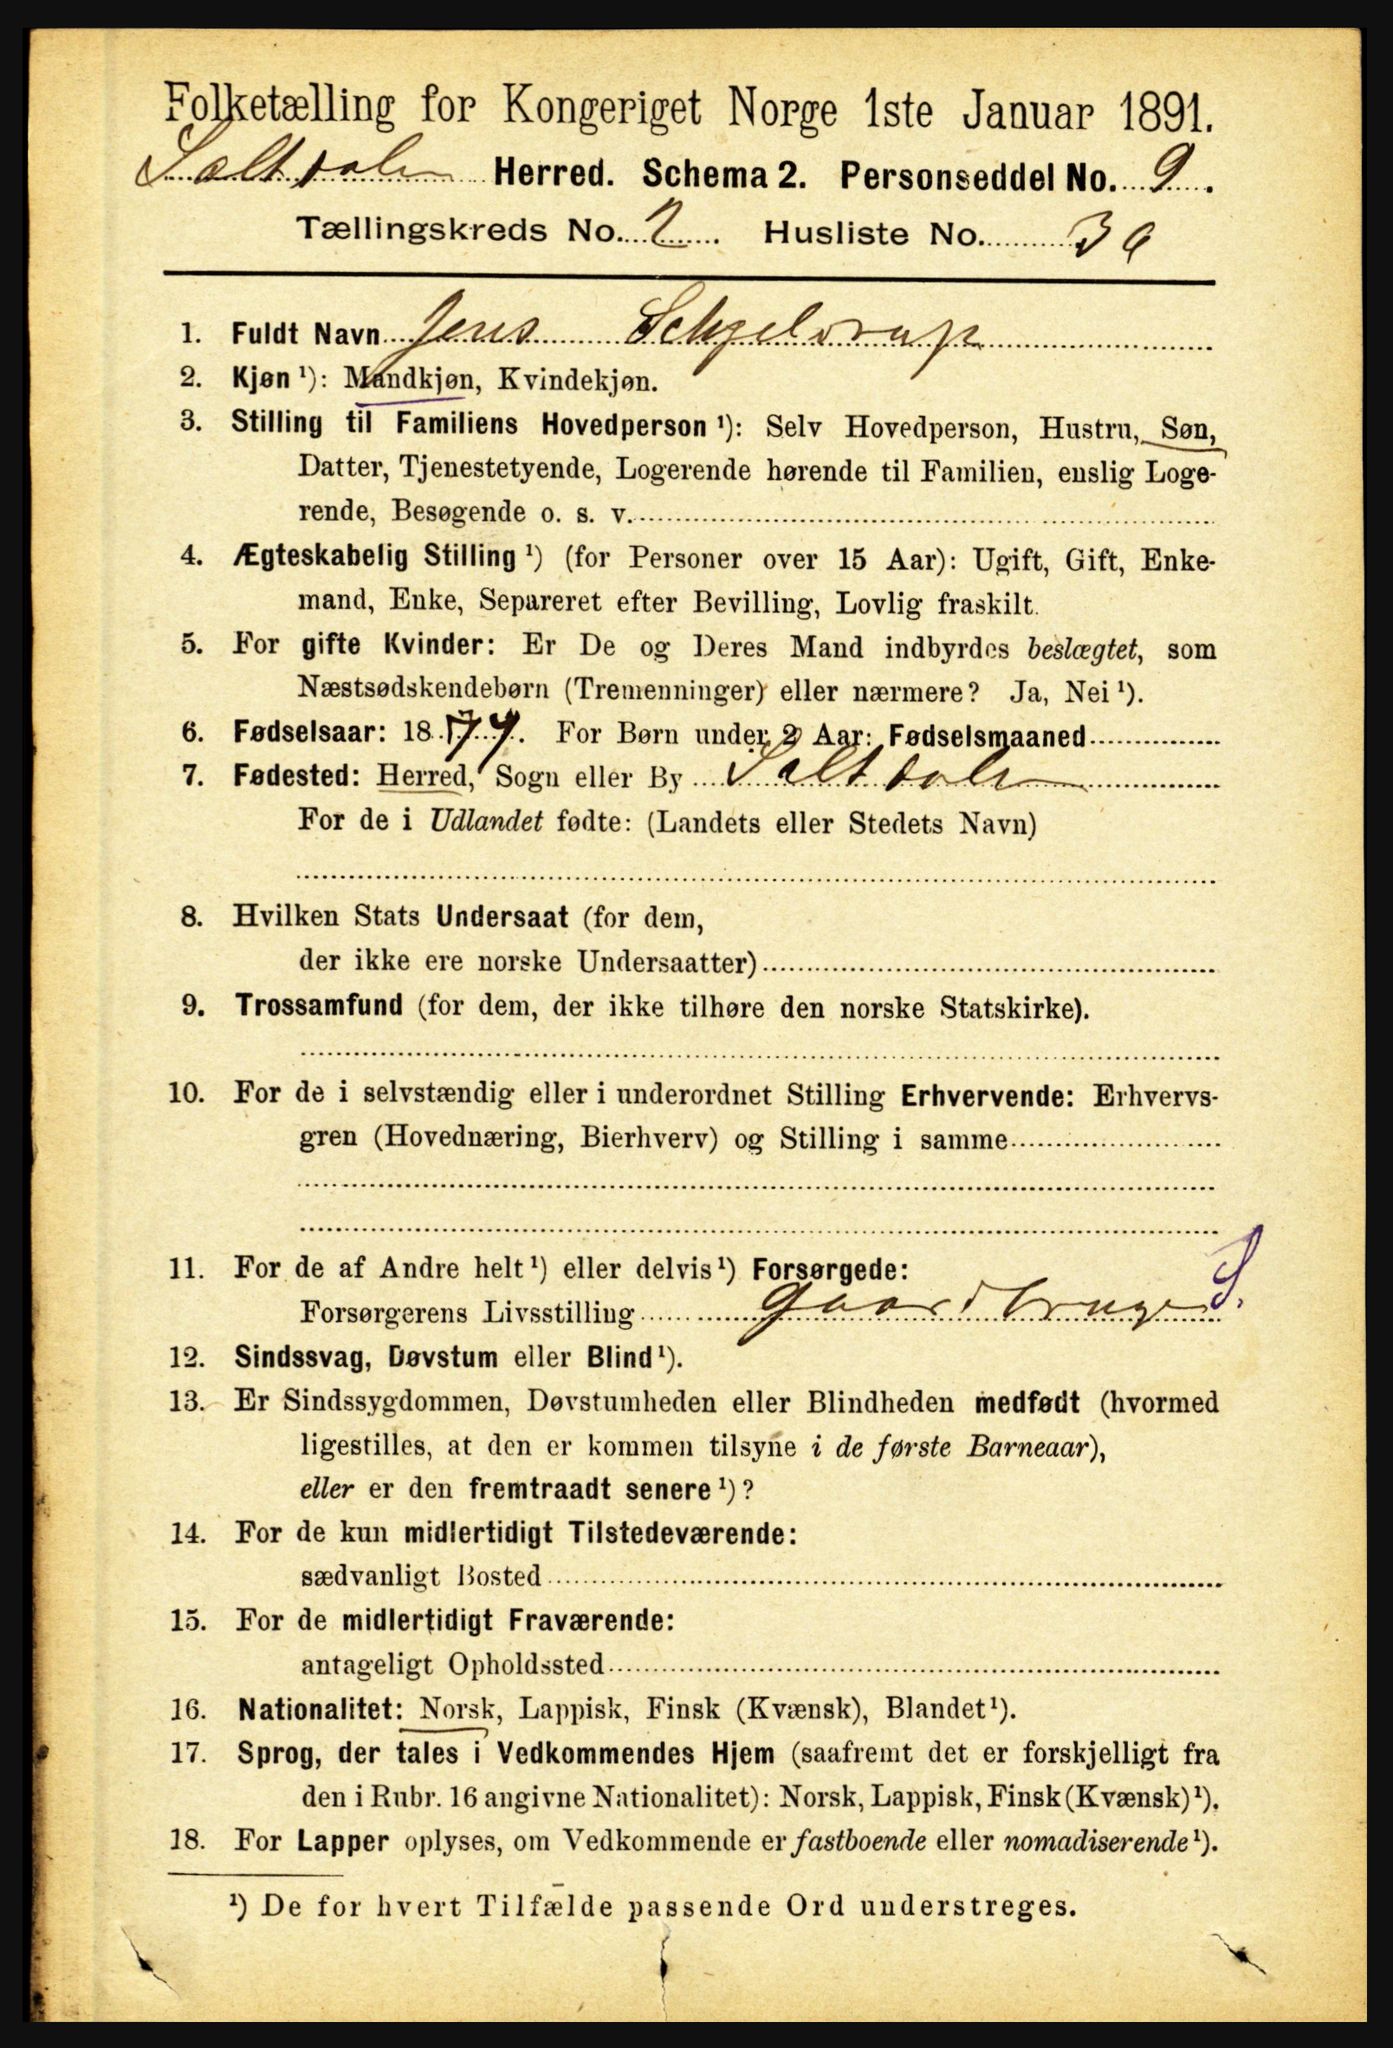 Folketælling for Kongeriget Norge 1ste Januar 1891.
Saltdalen Herred. Schema 2. Personseddel No. 9.
Tællingskreds No. 2. Husliste No. 39
1. Fuldt Navn Jens Schjeldrup
2. Kjøn ¹): Mandkjøn, Kvindekjøn.
3. Stilling til Familiens Hovedperson ¹): Selv Hovedperson, Hustru, Søn,
Datter, Tjenestetyende, Logerende hørende til Familien, enslig Loge-
rende, Besøgende o. s. v.
4. Ægteskabelig Stilling ¹) (for Personer over 15 Aar): Ugift, Gift, Enke-
mand, Enke, Separeret efter Bevilling, Lovlig fraskilt.
5. For gifte Kvinder: Er De og Deres Mand indbyrdes beslægtet, som
Næstsødskendebørn (Tremenninger) eller nærmere? Ja, Nei ¹).
6. Fødselsaar: 18 . For Børn under 2 Aar: Fødselsmaaned
7. Fødested: Herred, Sogn eller By Saltdalen
For de i Udlandet fødte: (Landets eller Stedets Navn)
8. Hvilken Stats Undersaat (for dem,
der ikke ere norske Undersaatter)
9. Trossamfund (for dem, der ikke tilhøre den norske Statskirke).
10. For de i selvstændig eller i underordnet Stilling Erhvervende: Erhvervs-
gren (Hovednæring, Bierhverv) og Stilling i samme
11. For de af Andre helt ¹) eller delvis ¹) Forsørgede: S.
Forsørgerens Livsstilling Gaardbruger
12. Sindssvag, Døvstum eller Blind ¹).
13. Er Sindssygdommen, Døvstumheden eller Blindheden medfødt (hvormed
ligestilles, at den er kommen tilsyne i de første Barneaar),
eller er den fremtraadt senere ¹)?
14. For de kun midlertidigt Tilstedeværende:
sædvanligt Bosted
15. For de midlertidigt Fraværende:
antageligt Opholdssted
16. Nationalitet: Norsk, Lappisk, Finsk (Kvænsk), Blandet ¹).
17. Sprog, der tales i Vedkommendes Hjem (saafremt det er forskjelligt fra
den i Rubr. 16 angivne Nationalitet): Norsk, Lappisk, Finsk (Kvænsk) ¹).
18. For Lapper oplyses, om Vedkommende er fastboende eller nomadiserende ¹).
¹) De for hvert Tilfælde passende Ord understreges.